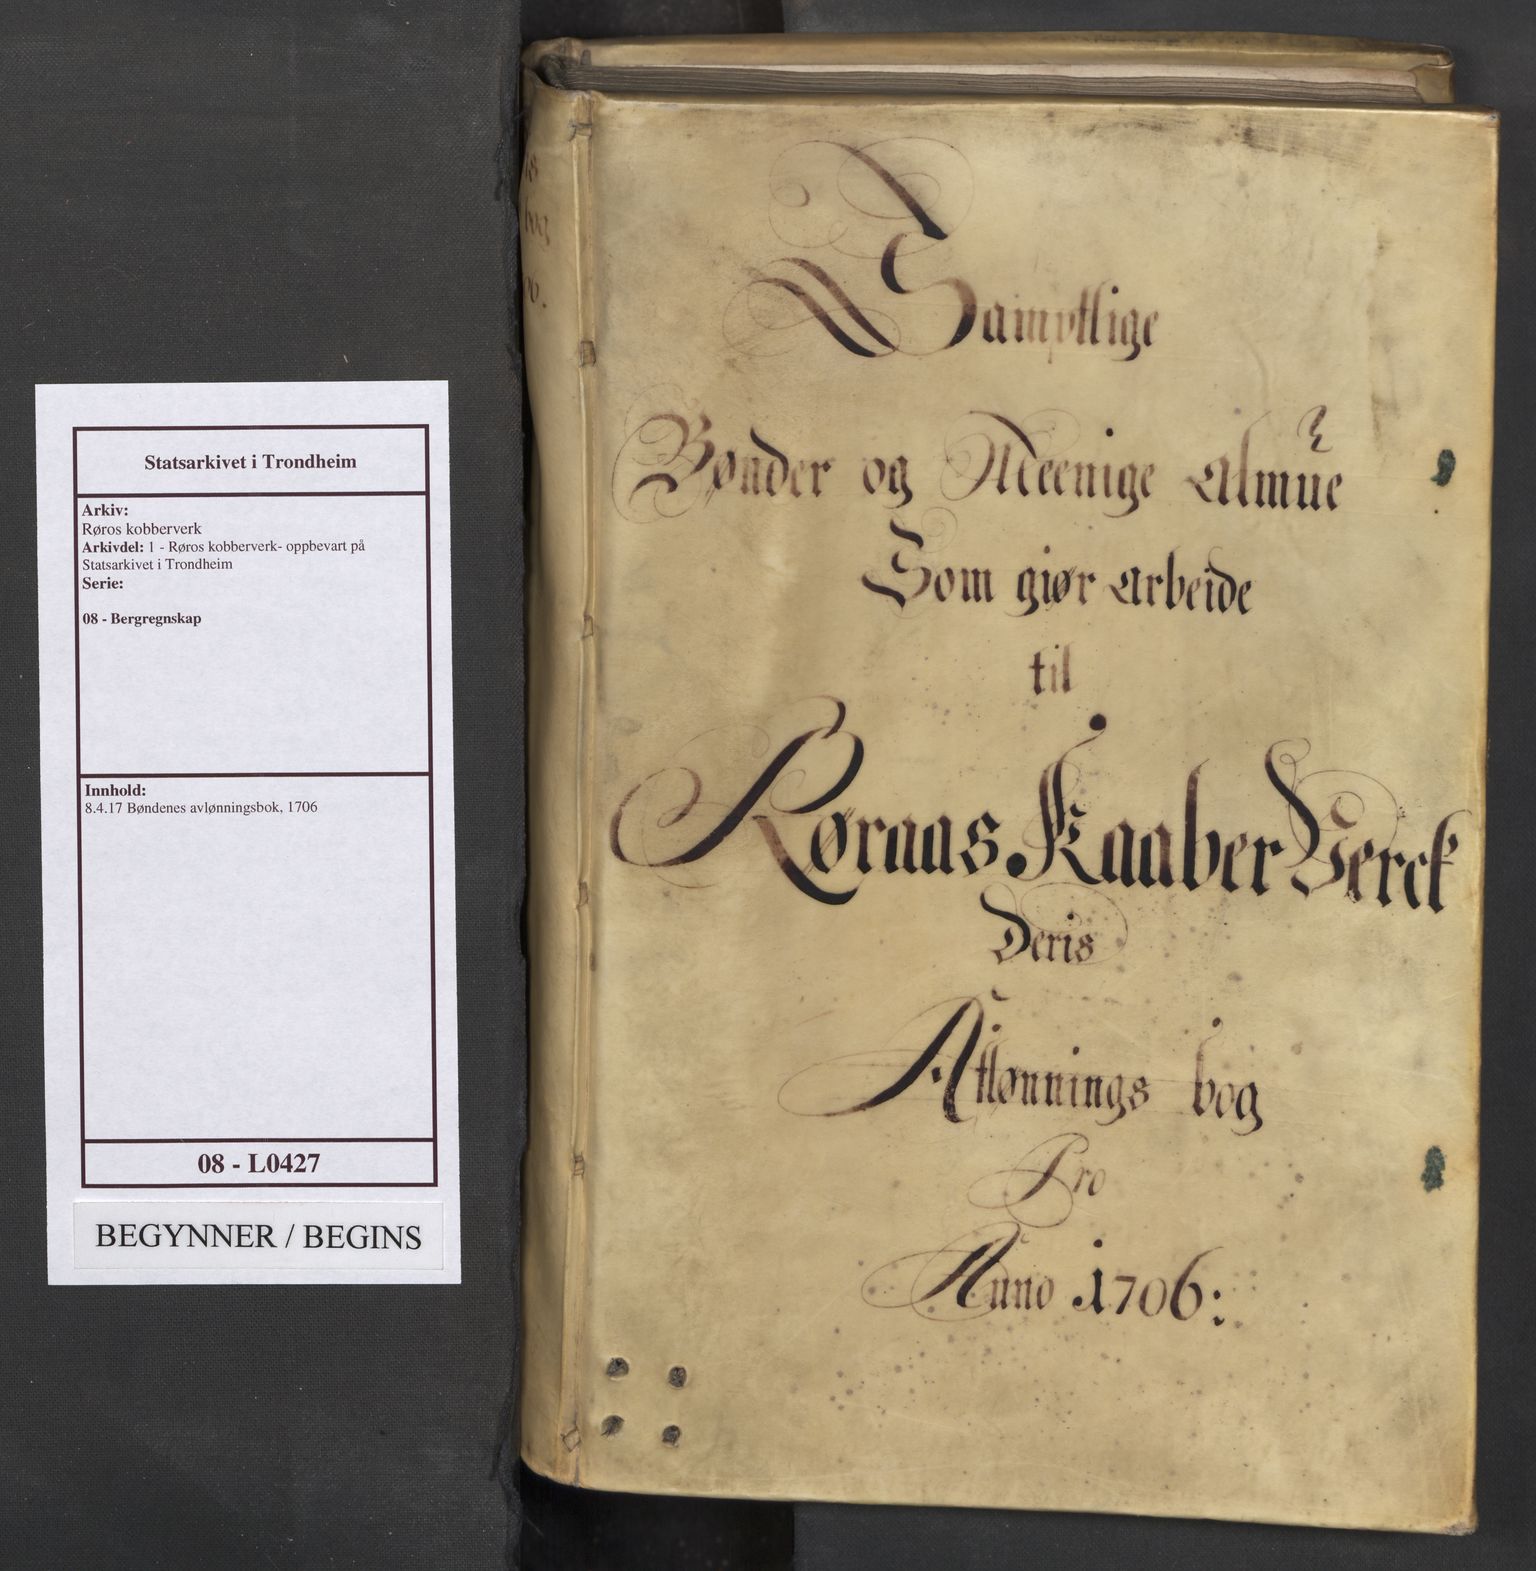 Statsarkivet i Trondheim
Arkiv:
Røros kobberverk
Arkivdel: 1 - Røros kobberverk- oppbevart på
Statsarkivet i Trondheim
Serie:
08 - Bergregnskap
Innhold:
8.4.17 Bøndenes avlønningsbok, 1706
08 - L0427
BEGYNNER / BEGINS
Samptlige
Bønder og Meenige Almue
Som giør Arbeide
til
Røraas Kaaber Verck
Deris
Aflønnings bog
Pro
Anno 1706: